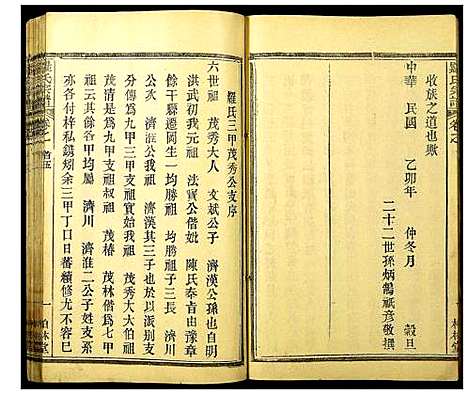 收族之道也歟
中華 民國 乙卯年 仲冬月 穀旦
二十二世孫炳鶴祇彥敬撰
羅氏三甲茂秀公支序
六世祖 茂秀大人 文斌公子 濟漢公孫也自明
洪武初我元式祖 法寶公偕妣 陳氏泰肯由豫章
餘干縣遷岡生一祖 均勝祖子三長 濟川
次 濟淮三 濟漢其三子也於是以派別支
分傳為九甲三甲祖實始我祖 茂秀大大伯祖
茂清公為八甲叔祖 茂椿 茂林偕為七甲
祖云其餘各甲均屬 濟川 濟淮二公子姓支系
亦各付梓私鐫矧余三甲丁口日蕃續修尤不容已
首五
一 柏林堂
羅氏宗譜
卷之